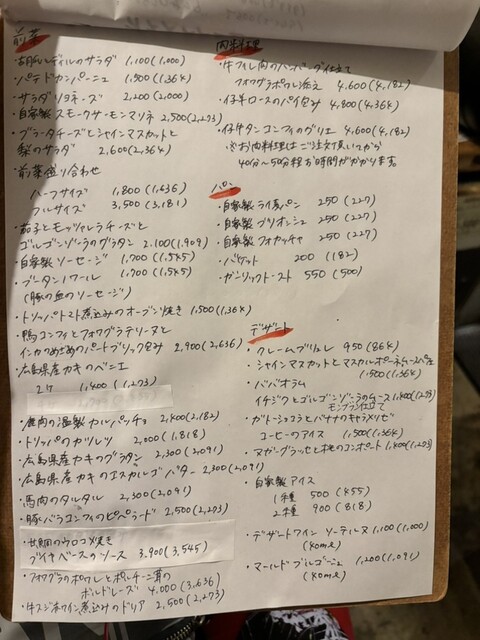 前菜
・胡瓜とディルのサラダ 1,100(1,000)
・パテドカンパーニュ 1,500(1,364)
・サラダリヨネーズ 2,200(2,000)
・自家製スモークサーモンマリネ 2,500(2,273)
・ブラータチーズとシャインマスカットと
梨のサラダ 2,600(2,364)
・前菜盛り合わせ
ハーフサイズ 1,800(1,636)
フルサイズ 3,500(3,181)
・茄子とモッツァレラチーズと
ゴルゴンゾーラのグラタン 2,100(1,909)
・自家製ソーセージ 1,700(1,545)
・ブータンノワール 1,700(1,545)
(豚の血のソーセージ)
・トリッパトマト煮込みのオーブン焼き 1,500(1,364)
・鴨コンフィとフォワグラテリーヌと
インカのめざめのパートブリック包み 2,900(2,636)
・広島県産カキのベニエ
2ケ 1,400(1,273)
・鹿肉の温製カルパッチョ 2,400(2,182)
・トリッパのカツレツ 2,000(1,818)
・広島県産カキのグラタン 2,300(2,091)
・広島県産カキのエスカルゴバター 2,300(2,091)
・馬肉のタルタル 2,300(2,091)
・豚バラコンフィのピペラード 2,500(2,273)
・甘鯛のウロコ焼き
ブイヤベースのソース 3,900(3,545)
・フォワグラのポワレとポルチーニ茸の
ボルドレーズ 4,000(3,636)
・牛スジ赤ワイン煮込みのドリア 2,500(2,273)
肉料理
・牛フィレ肉のハンバーグ仕立て
フォワグラポワレ添え 4,600(4,182)
・仔羊ロースのパイ包み 4,800(4,364)
・仔牛タンコンフィのグリエ 4,600(4,182)
※お肉料理はご注文頂いてから
40分〜50分程お時間がかかります。
パン
・自家製ライ麦パン 250(227)
・自家製ブリオッシュ 250(227)
・自家製フォカッチャ 250(227)
・バゲット 200(182)
・ガーリックトースト 550(500)
デザート
・クレームブリュレ 950(864)
・シャインマスカットとマスカルポーネムース
1,500(1,364)
・ババオラム
イチジクとゴルゴンゾーラのムース 1,400(1,273)
モンブラン仕立て
・ガトーショコラとバナナのキャラメリゼ
コーヒーのアイス 1,500(1,364)
・ヌガーグラッセと桃のコンポート 1,400(1,273)
・自家製アイス
1種 500(455)
2種 900(818)
・デザートワイン ソーテルヌ 1,100(1,000)
(60ml)
・マールドブルゴーニュ 1,200(1,091)
(60ml)